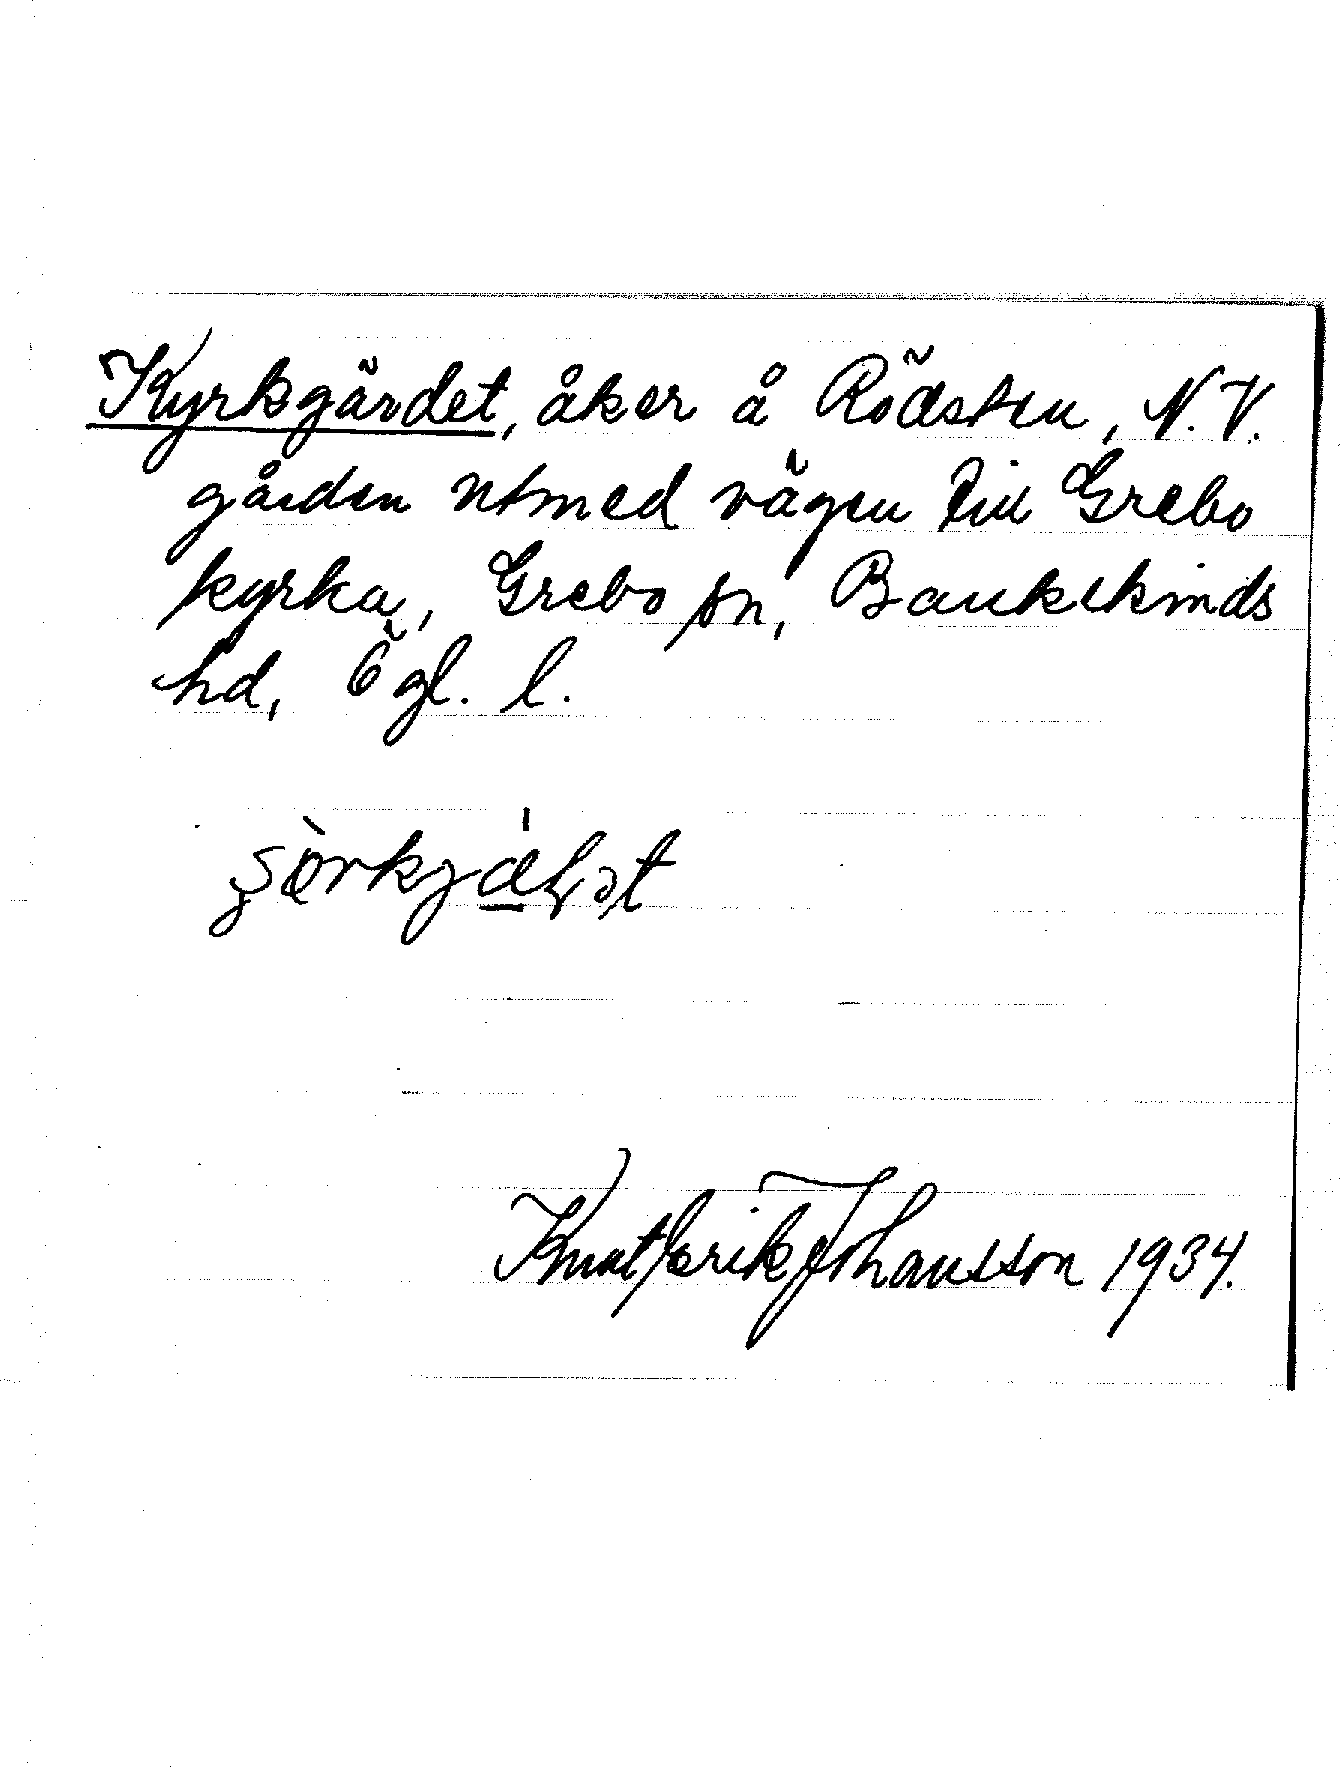 Kyrkgärdet, åker å Rödsten, N.V.
gården utmed vägen till Grebo
kyrka, Grebo sn, Bankekinds
hd, Ögl. l.
Knut Erik Johansson 1934.